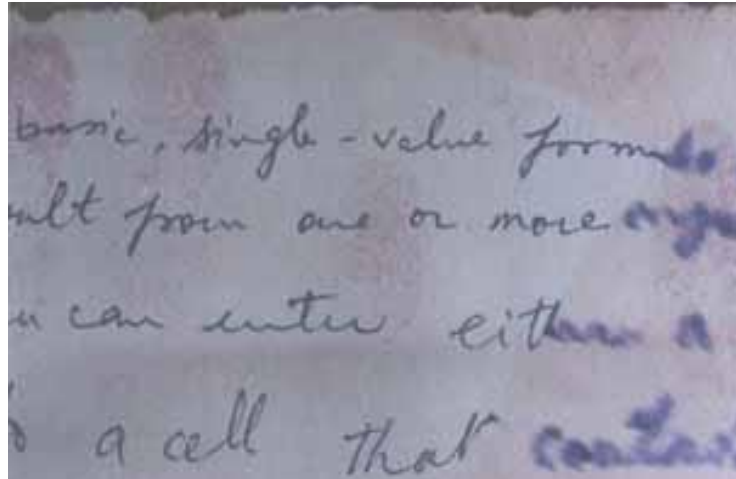 basic, single-value formula
from one or more
can enter either a
a cell that